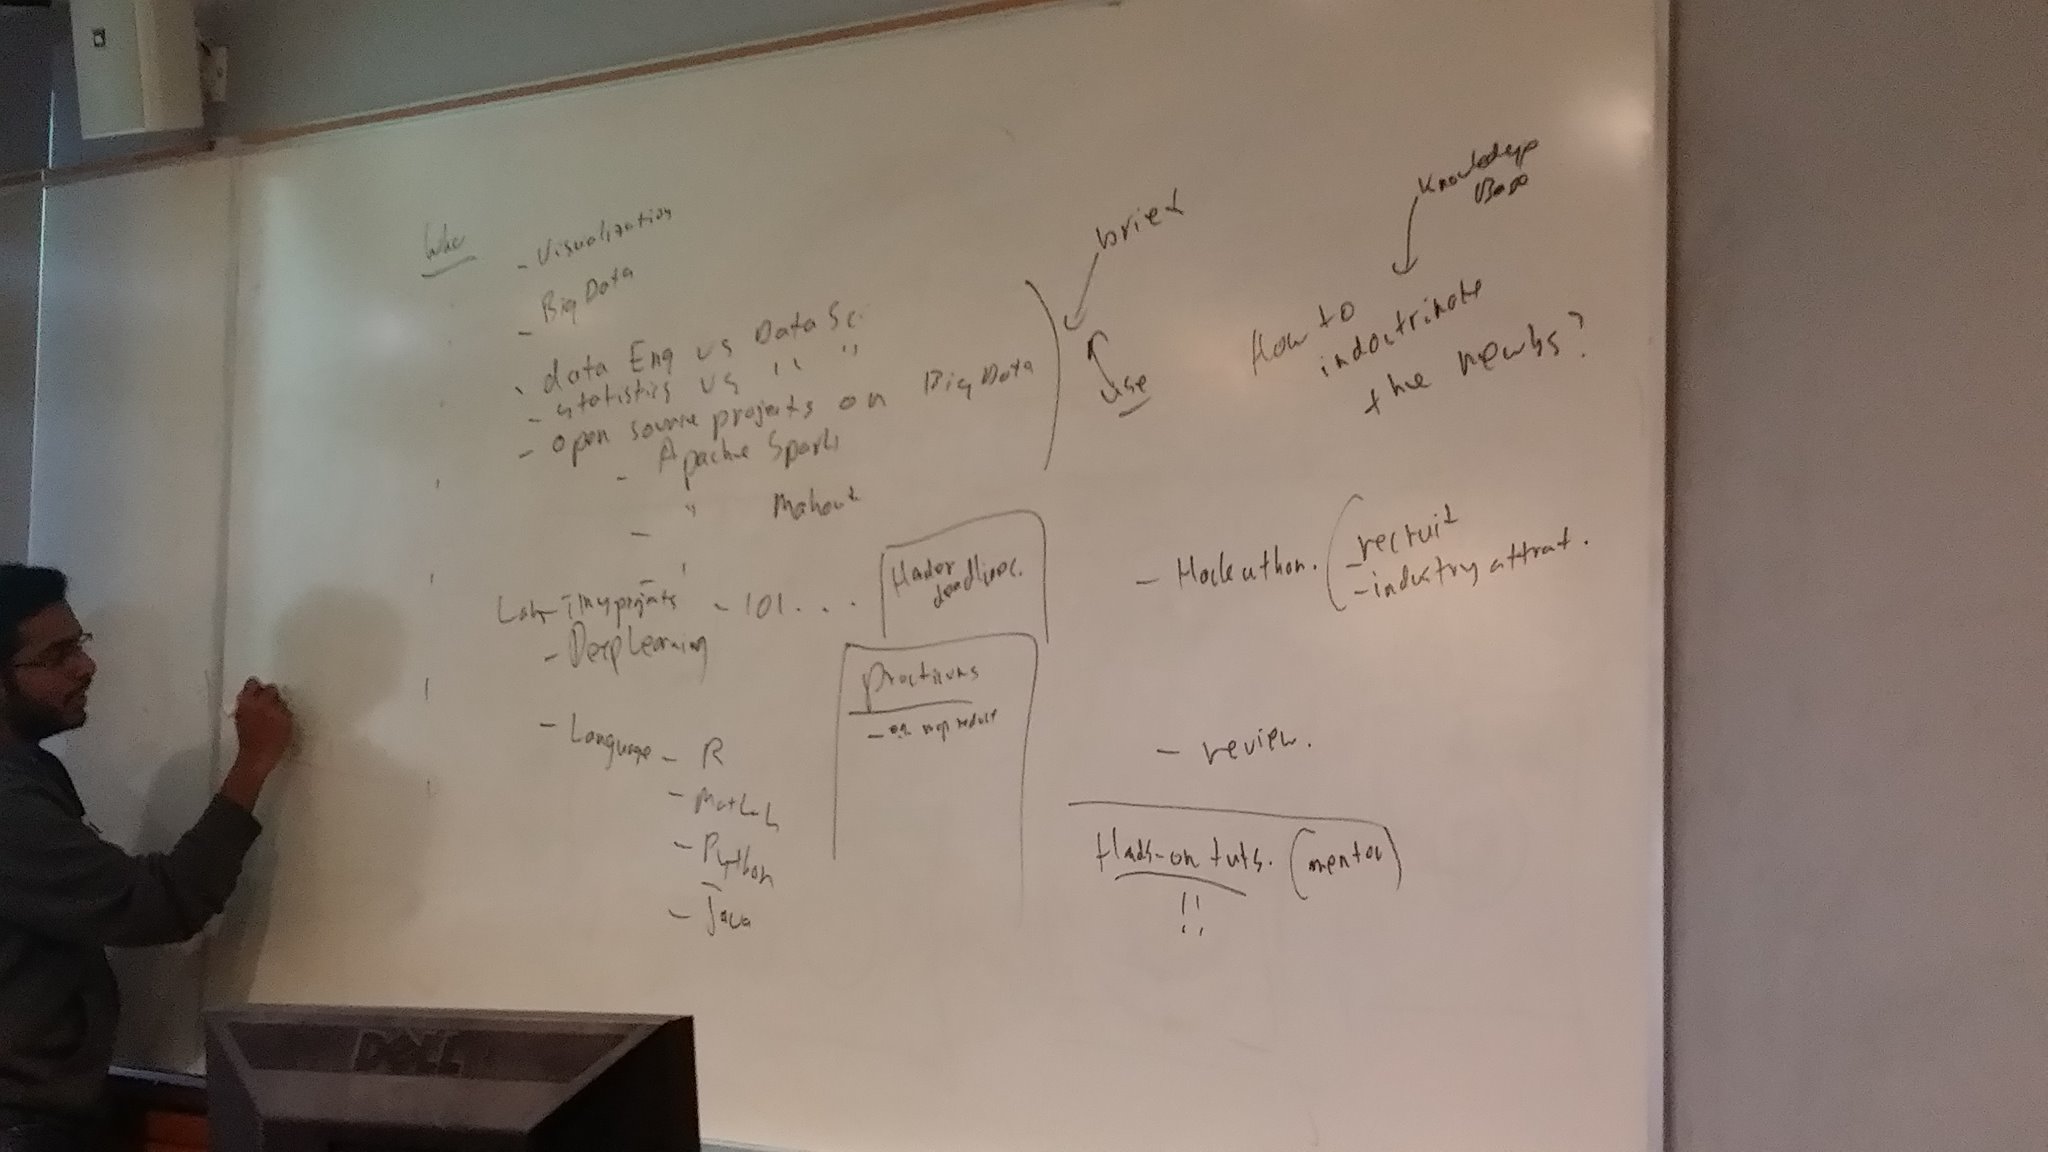 - Visualization
- Big Data
- data Eng vs Data Sc.
- statistics vs " "
- open source projects on Big Data
- Apache Spark
- " Mahout
- Tiny projects - 101...
- Deep Learning
- Language - R
- Matlab
- Python
- Java
Hader
deadlines.
practicums
- map reduce
brief
use
Knowledge
Base
How to
indoctrinate
the newbs?
- Hackathon. ( - recruit
- industry attrat.
- review.
Hads-on tuts. (mentor)
!!
DELL